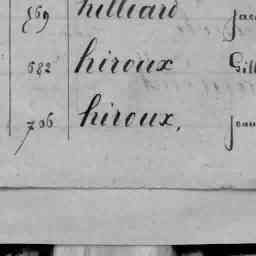 569 hilliard Jac
682 hiroux Gill
706 hiroux, Jean